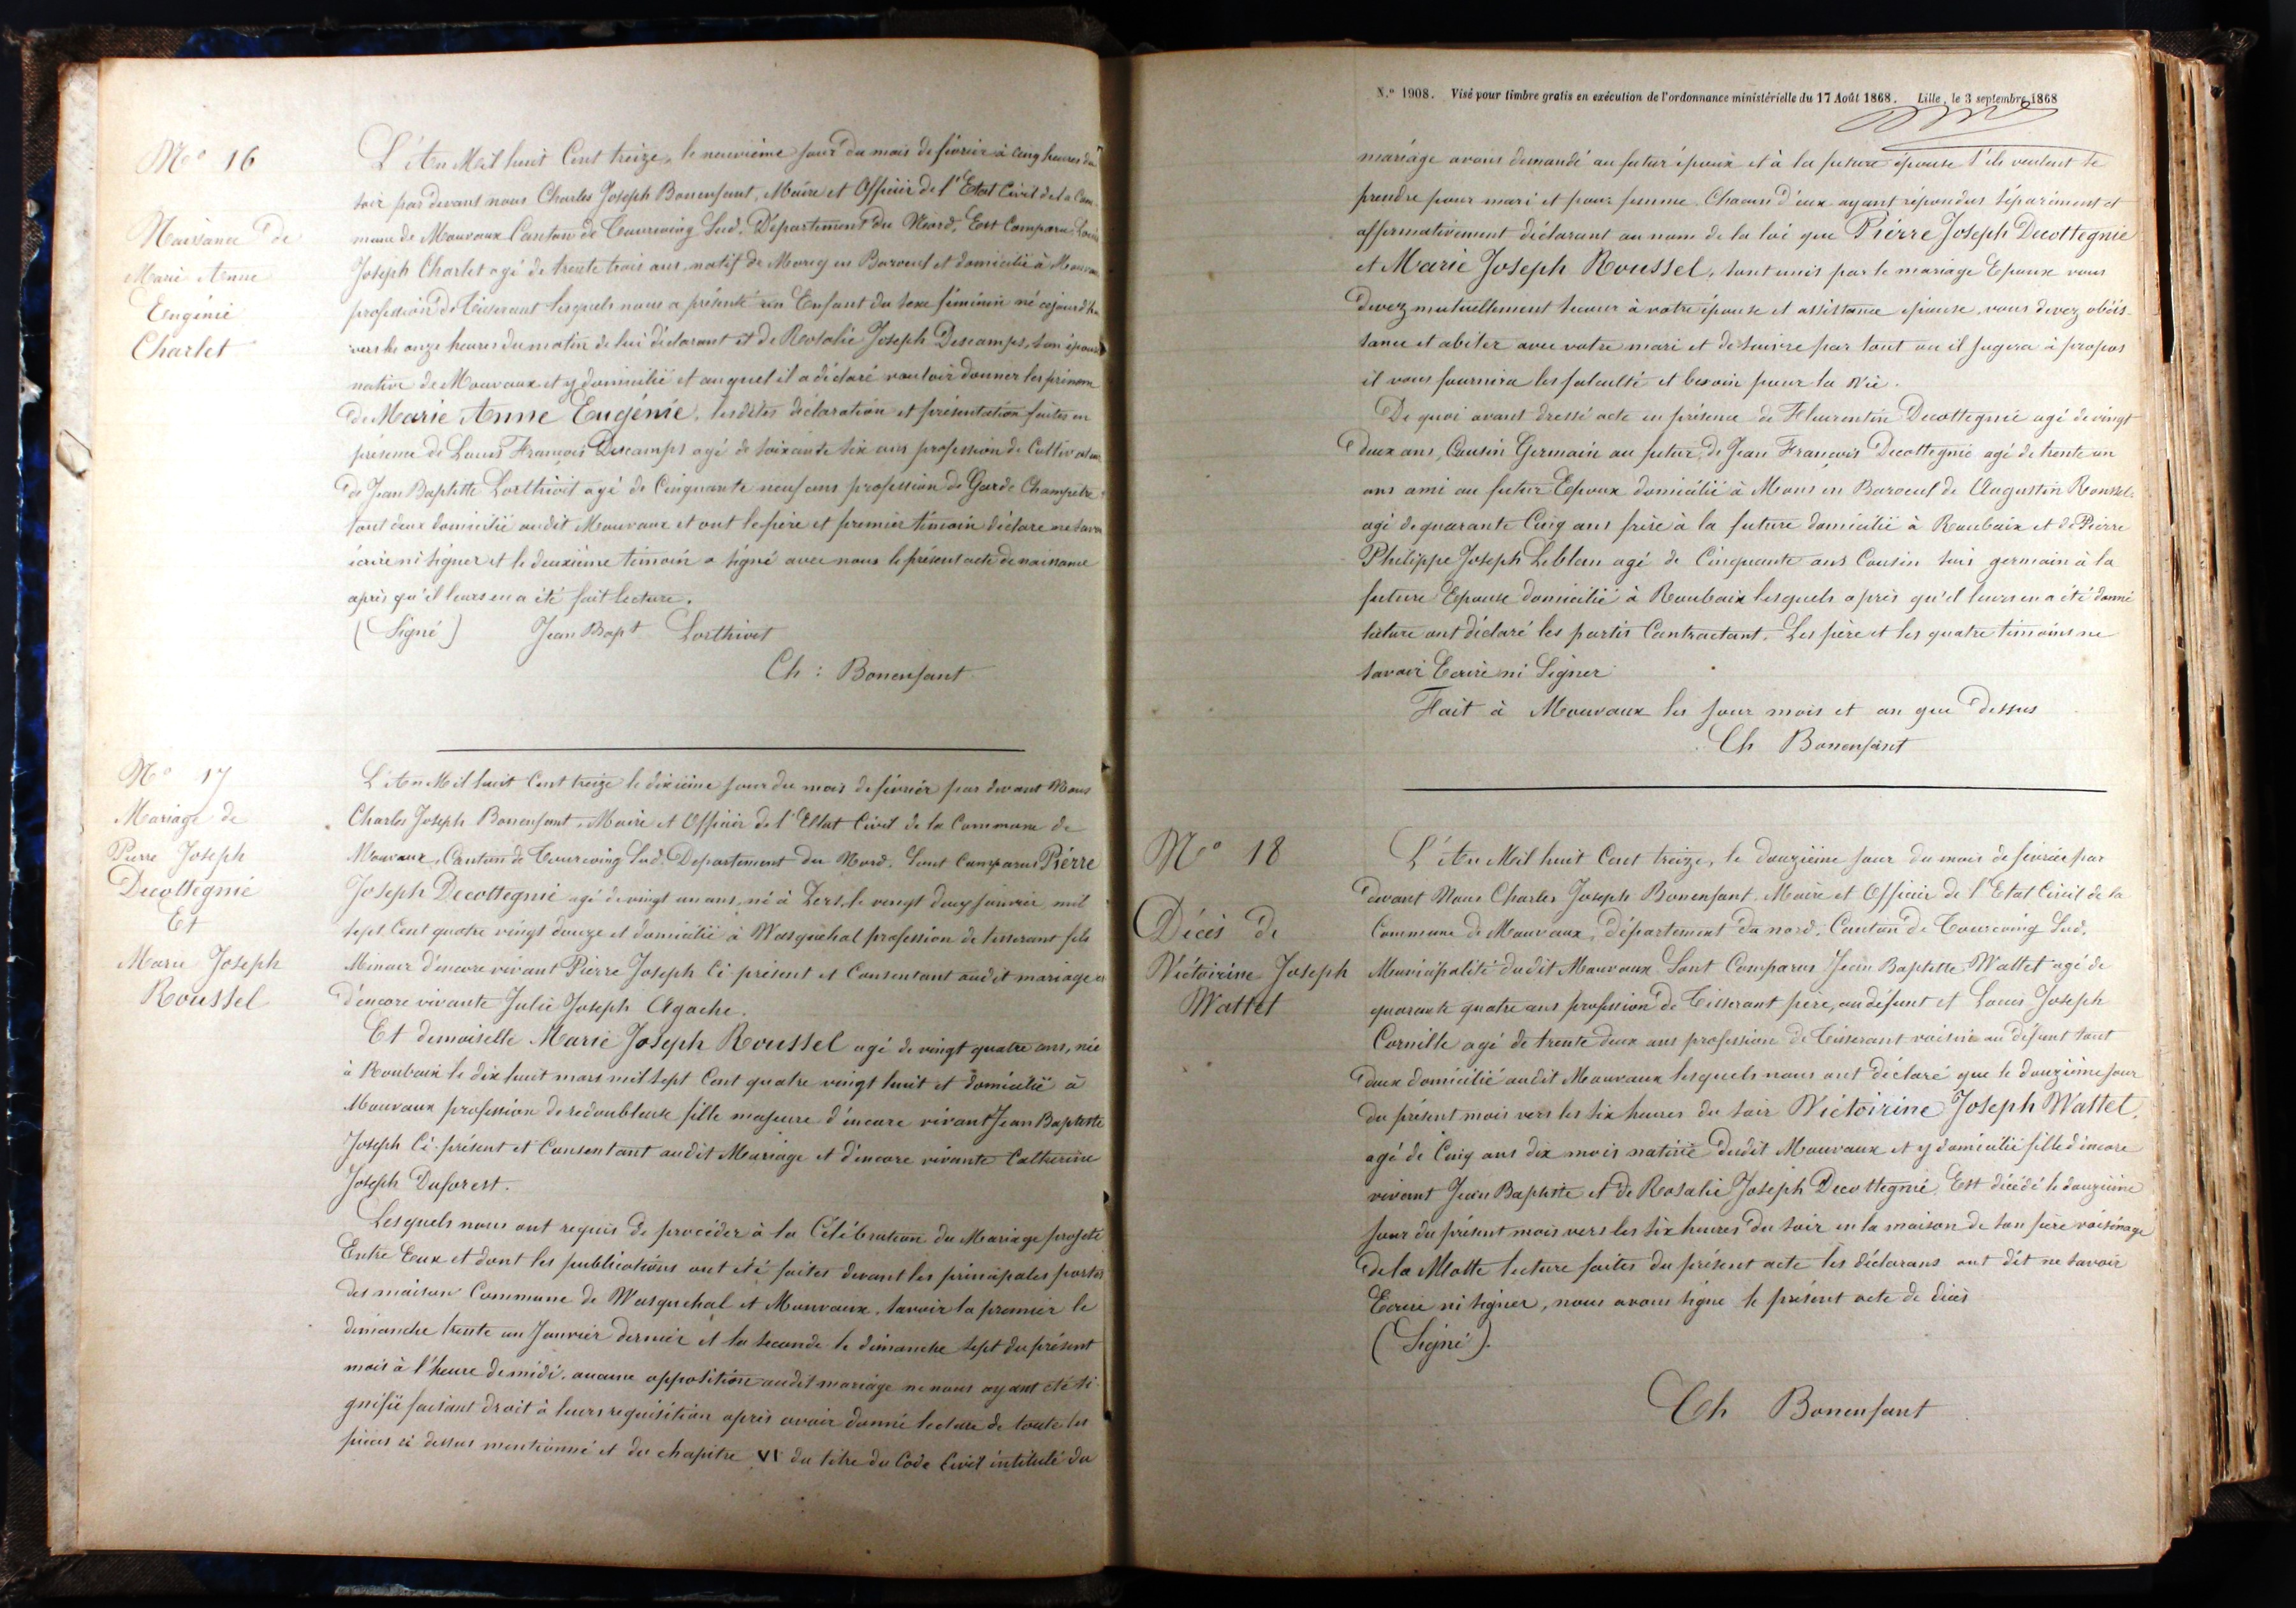 N° 16
Naissance de
Marie Anne
Eugénie
Charlet
L'An Mil huit Cent treize, le neuvième jour du mois de février à cinq heures du
soir par devant nous Charles Joseph Bonenfant, Maire et Officier de l'Etat Civil de la Com
mune de Mouvaux Canton de Tourcoing Sud, Département du Nord, Est Comparu Louis
Joseph Charlet agé de trente trois ans, natif de Marcq en Baroeul et domicilié à
profession de Tisserant lesquels nous a présenté un Enfant du sexe féminin né
vers les onze heures du matin de lui déclarant et de Rosalie Joseph Descamps, son épouse
native de Mouvaux et y domicilié et auquel il a déclaré vouloir donner les prénom
de Marie Anne Eugénie, lesdites déclaration et présentation faites en
présence de Louis François Descamps agé de soixante six ans profession de Cultivateur
de Jean Baptiste Lorthiois agé de Cinquante neuf ans profession de Garde Champetre
tout deux domicilié audit Mouvaux et ont le père et premier témoin déclare ne savoir
écrire ni signer et le deuxième témoin a signé avec nous le présent acte de naissance
après qu'il leurs en a été fait lecture.
(Signé) Jean Bapt Lorthiois
Ch : Bonenfant
N° 17
Mariage de
Pierre Joseph
Decottegnie
Et
Marie Joseph
Roussel
L'An Mil huit Cent treize le dixième jour du mois de février par devant Nous
Charles Joseph Bonenfant, Maire et Officier de l'Etat Civil de la Commune de
Mouvaux, Canton de Tourcoing Sud. Departement du Nord. Sont Comparus Pierre
Joseph Decottegnie agé de vingt un ans, né à Lers, le vingt deux janvier mil
sept Cent quatre vingt douze et domicilié à Wasquehal profession de tisserant fils
Mineur d'encore vivant Pierre Joseph Ci-présent et Consentant audit mariage et
d'encore vivante Julie Joseph Agache.
Et demoiselle Marie Joseph Roussel agé de vingt quatre ans, née
à Roubaix le dix huit mars mil sept Cent quatre vingt huit et domicilié à
Mouvaux profession de redoubleuse fille majeure d'encore vivant Jean Baptiste
Joseph Ci-présent et Consentant audit Mariage et d'encore vivante Catherine
Joseph Duforest.
Lesquels nous ont requis de procéder à la Célébration du Mariage projeté
Entre Eux et dont les publications ont été faites devant les principales portes
des maison Commune de Wasquehal et Mouvaux, savoir la premier le
dimanche trente un Janvier dernier et la seconde le dimanche sept du présent
mois à l'heure de midi, aucune opposition audit mariage ne nous ayant été si
gnifié faisant droit à leurs requisition après avoir donné lecture de toute les
pièces ci dessus mentionné et du chapitre VI du titre du Code Civil intitulé du
N.° 1908. Visé pour timbre gratis en exécution de l'ordonnance ministérielle du 17 Août 1868. Lille, le 3 septembre 1868
mariage avons demandé au futur époux et à la future épouse s'ils veulent se
prendre pour mari et pour femme. Chacun d'eux ayant répondus séparément et
affirmativement déclarant au nom de la loi que Pierre Joseph Decottegnie
et Marie Joseph Roussel, sont unis par le mariage Epoux vous
devez mutuellement secour à votre épouse et assistance épouse, vous devez obéis
sance et abiter avec votre mari et de suivre par tout ou il jugera à propos
il vous fournira les faculté et besoin pour la vie.
De quoi avont dressé acte en présence de Fleurentin Decottegnie agé de vingt
deux ans, Cousin Germain au futur, de Jean François Decottegnie agé de trente un
ans ami au futur Epoux domicilié à Mons en Baroeul de Augustin Roussel
agé de quarante Cinq ans frère à la future domicilié à Roubaix et de Pierre
Philippe Joseph Leblan agé de Cinquante ans Cousin sous germain à la
future Epouse domicilié à Roubaix lesquels après qu'il leurs en a été donné
lecture ont déclaré les partis Contractant. Les père et les quatre témoins ne
savoir Ecrire ni Signer
Fait à Mouvaux les jour mois et an que dessus
Ch Bonenfant
N° 18
Décès de
Victoirine Joseph
Wattel
L'An Mil huit Cent treize, le douzième jour du mois de février par
devant Nous Charles Joseph Bonenfant, Maire et Officier de l'Etat Civil de la
Commune de Mouvaux, département du nord, Canton de Tourcoing Sud,
Municipalité dudit Mouvaux Sont Comparus Jean Baptiste Wattel agé de
quarante quatre ans profession de Tisserant père, au défunt et Louis Joseph
Cornille agé de trente deux ans profession de Tisserant voisin au défunt tout
deux domicilié audit Mouvaux lesquels nous ont déclaré que le douzième jour
du présent mois vers les six heures du soir Victoirine Joseph Wattel,
agé de Cinq ans dix mois native dudit Mouvaux et y domicilié fille d'encore
vivant Jean Baptiste et de Rosalie Joseph Decottegnie. Est décédé le douzième
jour du présent mois vers les six heures du soir en la maison de son père voisinage
de la Motte lecture faites du présent acte les déclarans ont dit ne savoir
Ecrire ni signer, nous avons signe le présent acte de décès
(Signé).
Ch Bonenfant